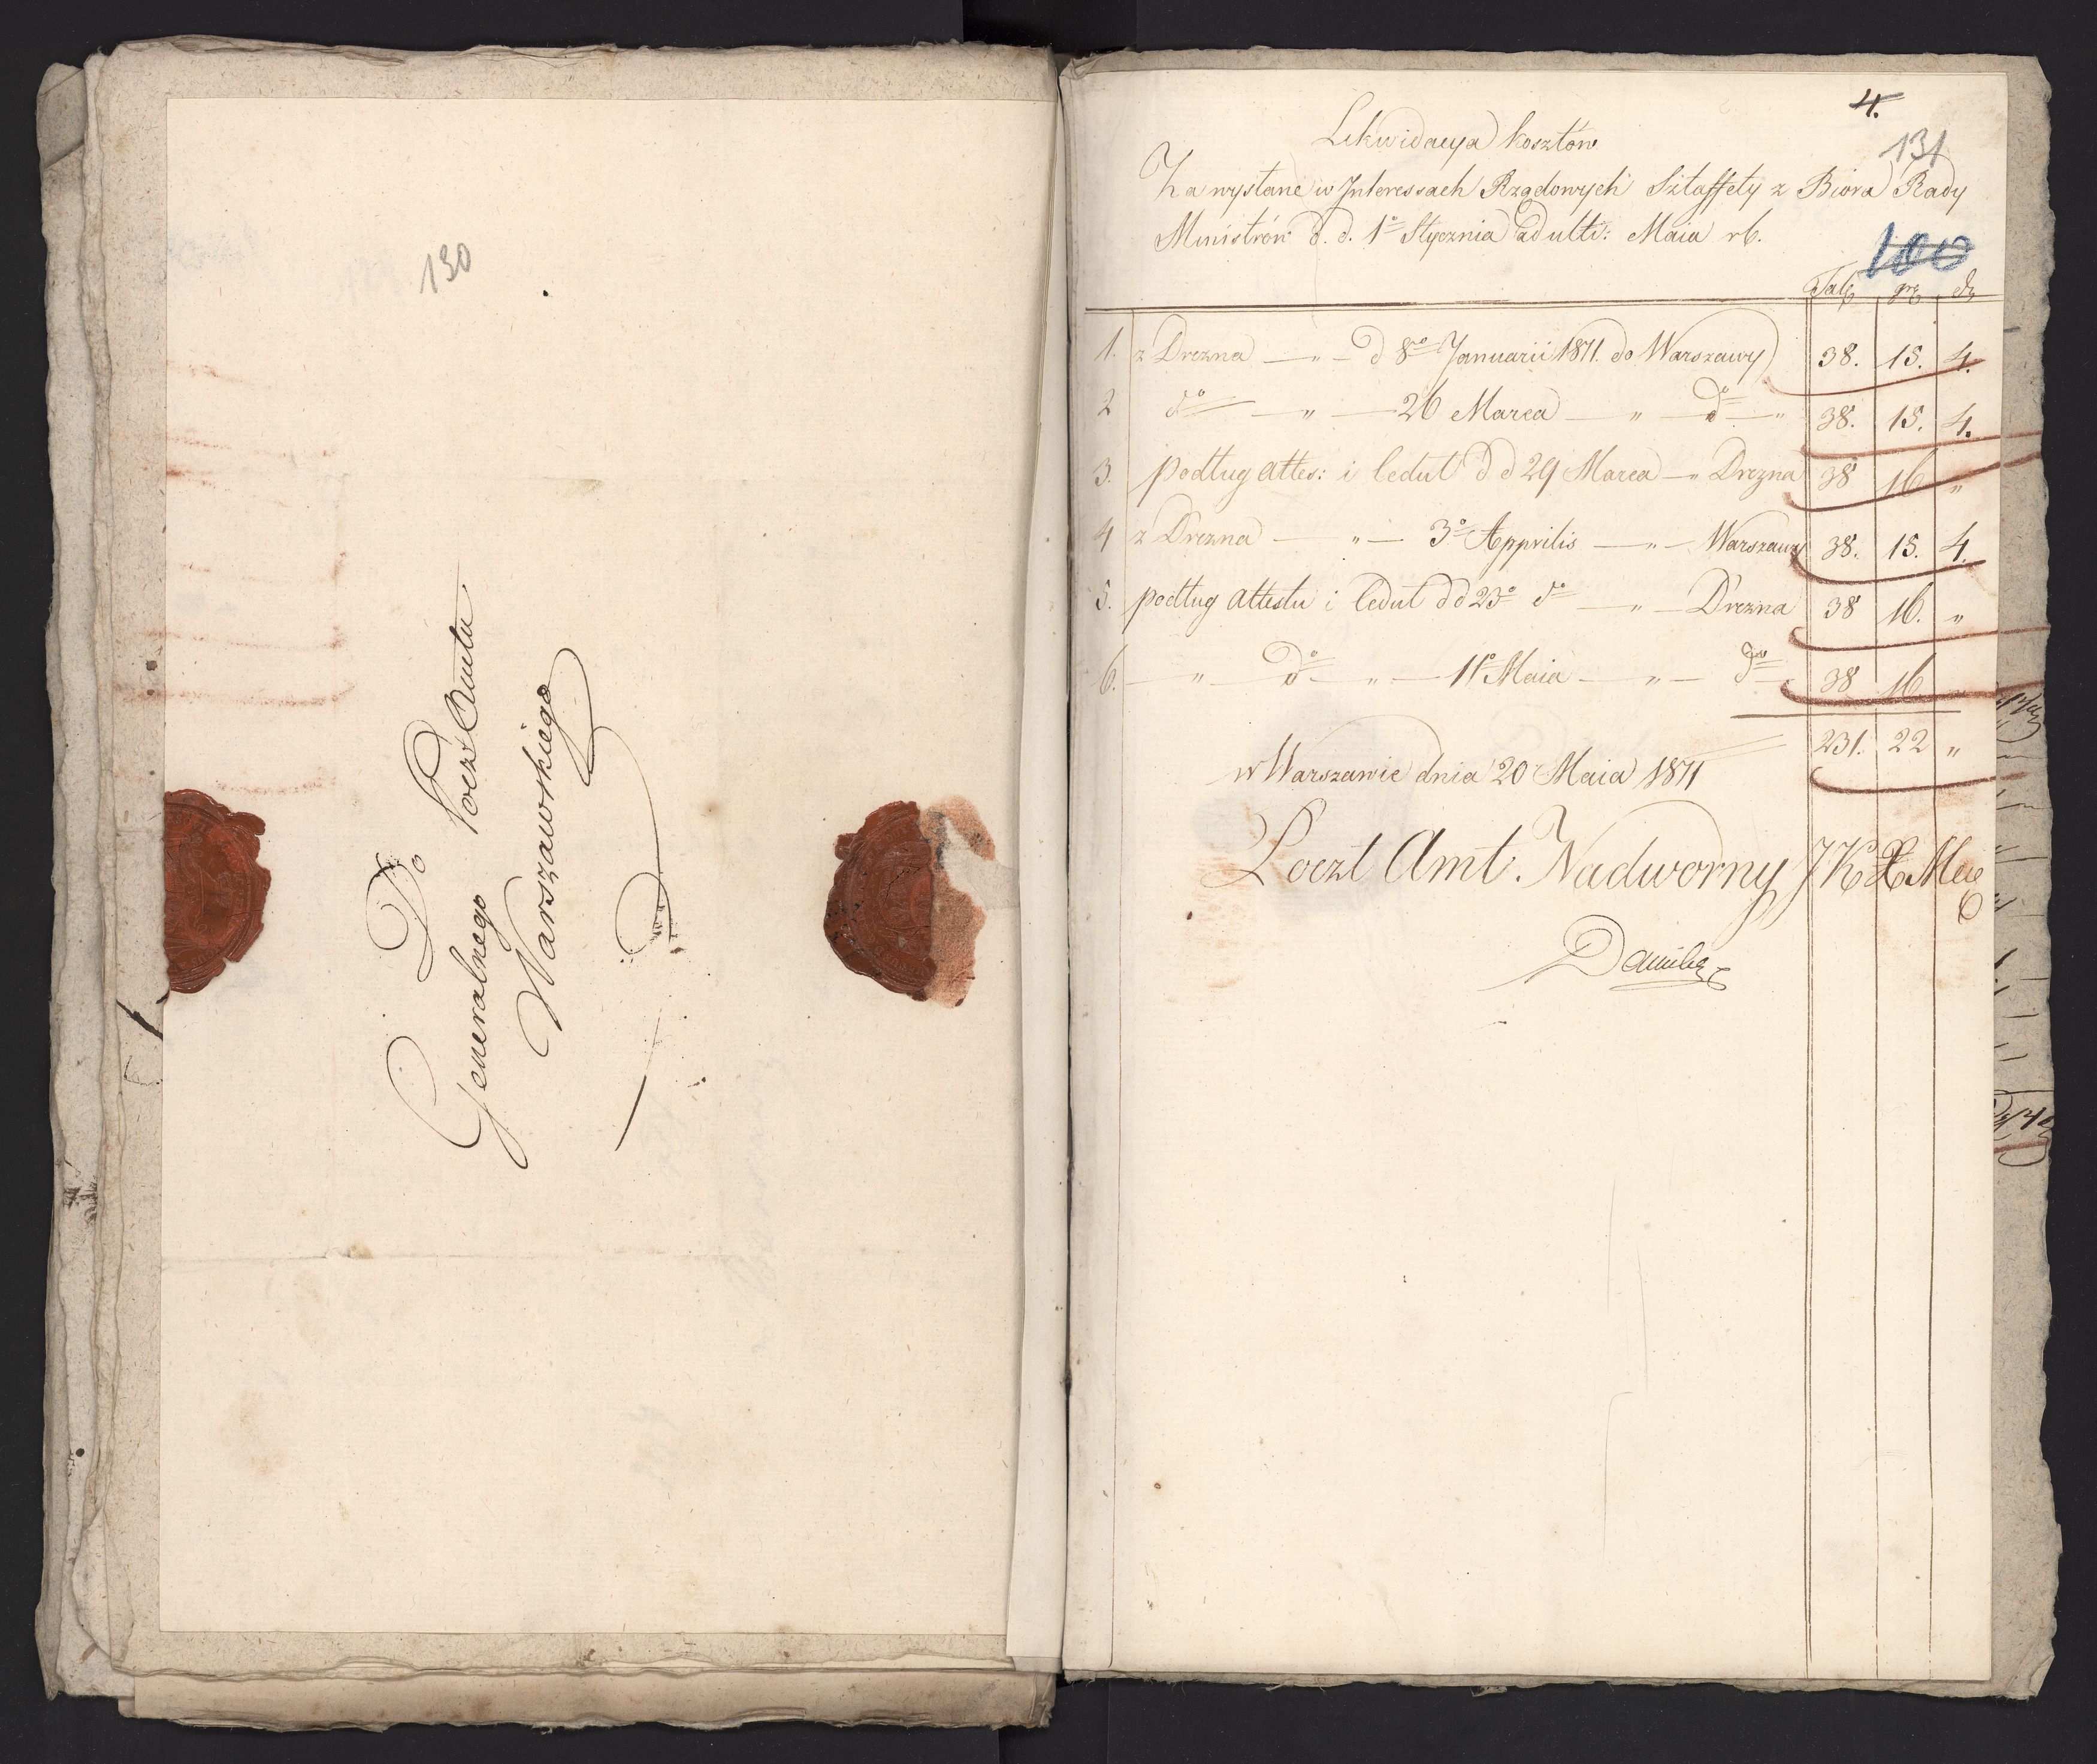 130
Do
Generalnego Poczt Amtu
Warszawskiego
4.
131
Likwidacya kosztów
Za wysłane w Interessach Rządowych Sztaffety z Biora Rady
Ministrów d. d. 1º Stycznia ad ulti: Maia rb.
100
Tal gr d
1. z Drezna — " — d 8vo Januarii 1811. do Warszawy 38. 15. 4.
2 do — " — 26 Marca — " — do — " 38. 15. 4.
3. podług attes: i cedul d d 29 Marca — " Drezna 38 16 "
4 z Drezna — " — 3º Apprilis — " — Warszawy 38. 15. 4.
5. podług attestu i cedul d d 23º do — " — Drezna 38 16. "
6. — " — do — " — 11º Maia — " — do 38 16 "
231. 22 "
w Warszawie dnia 20 Maia 1811
Poczt Amt Nadworny J K X Mci